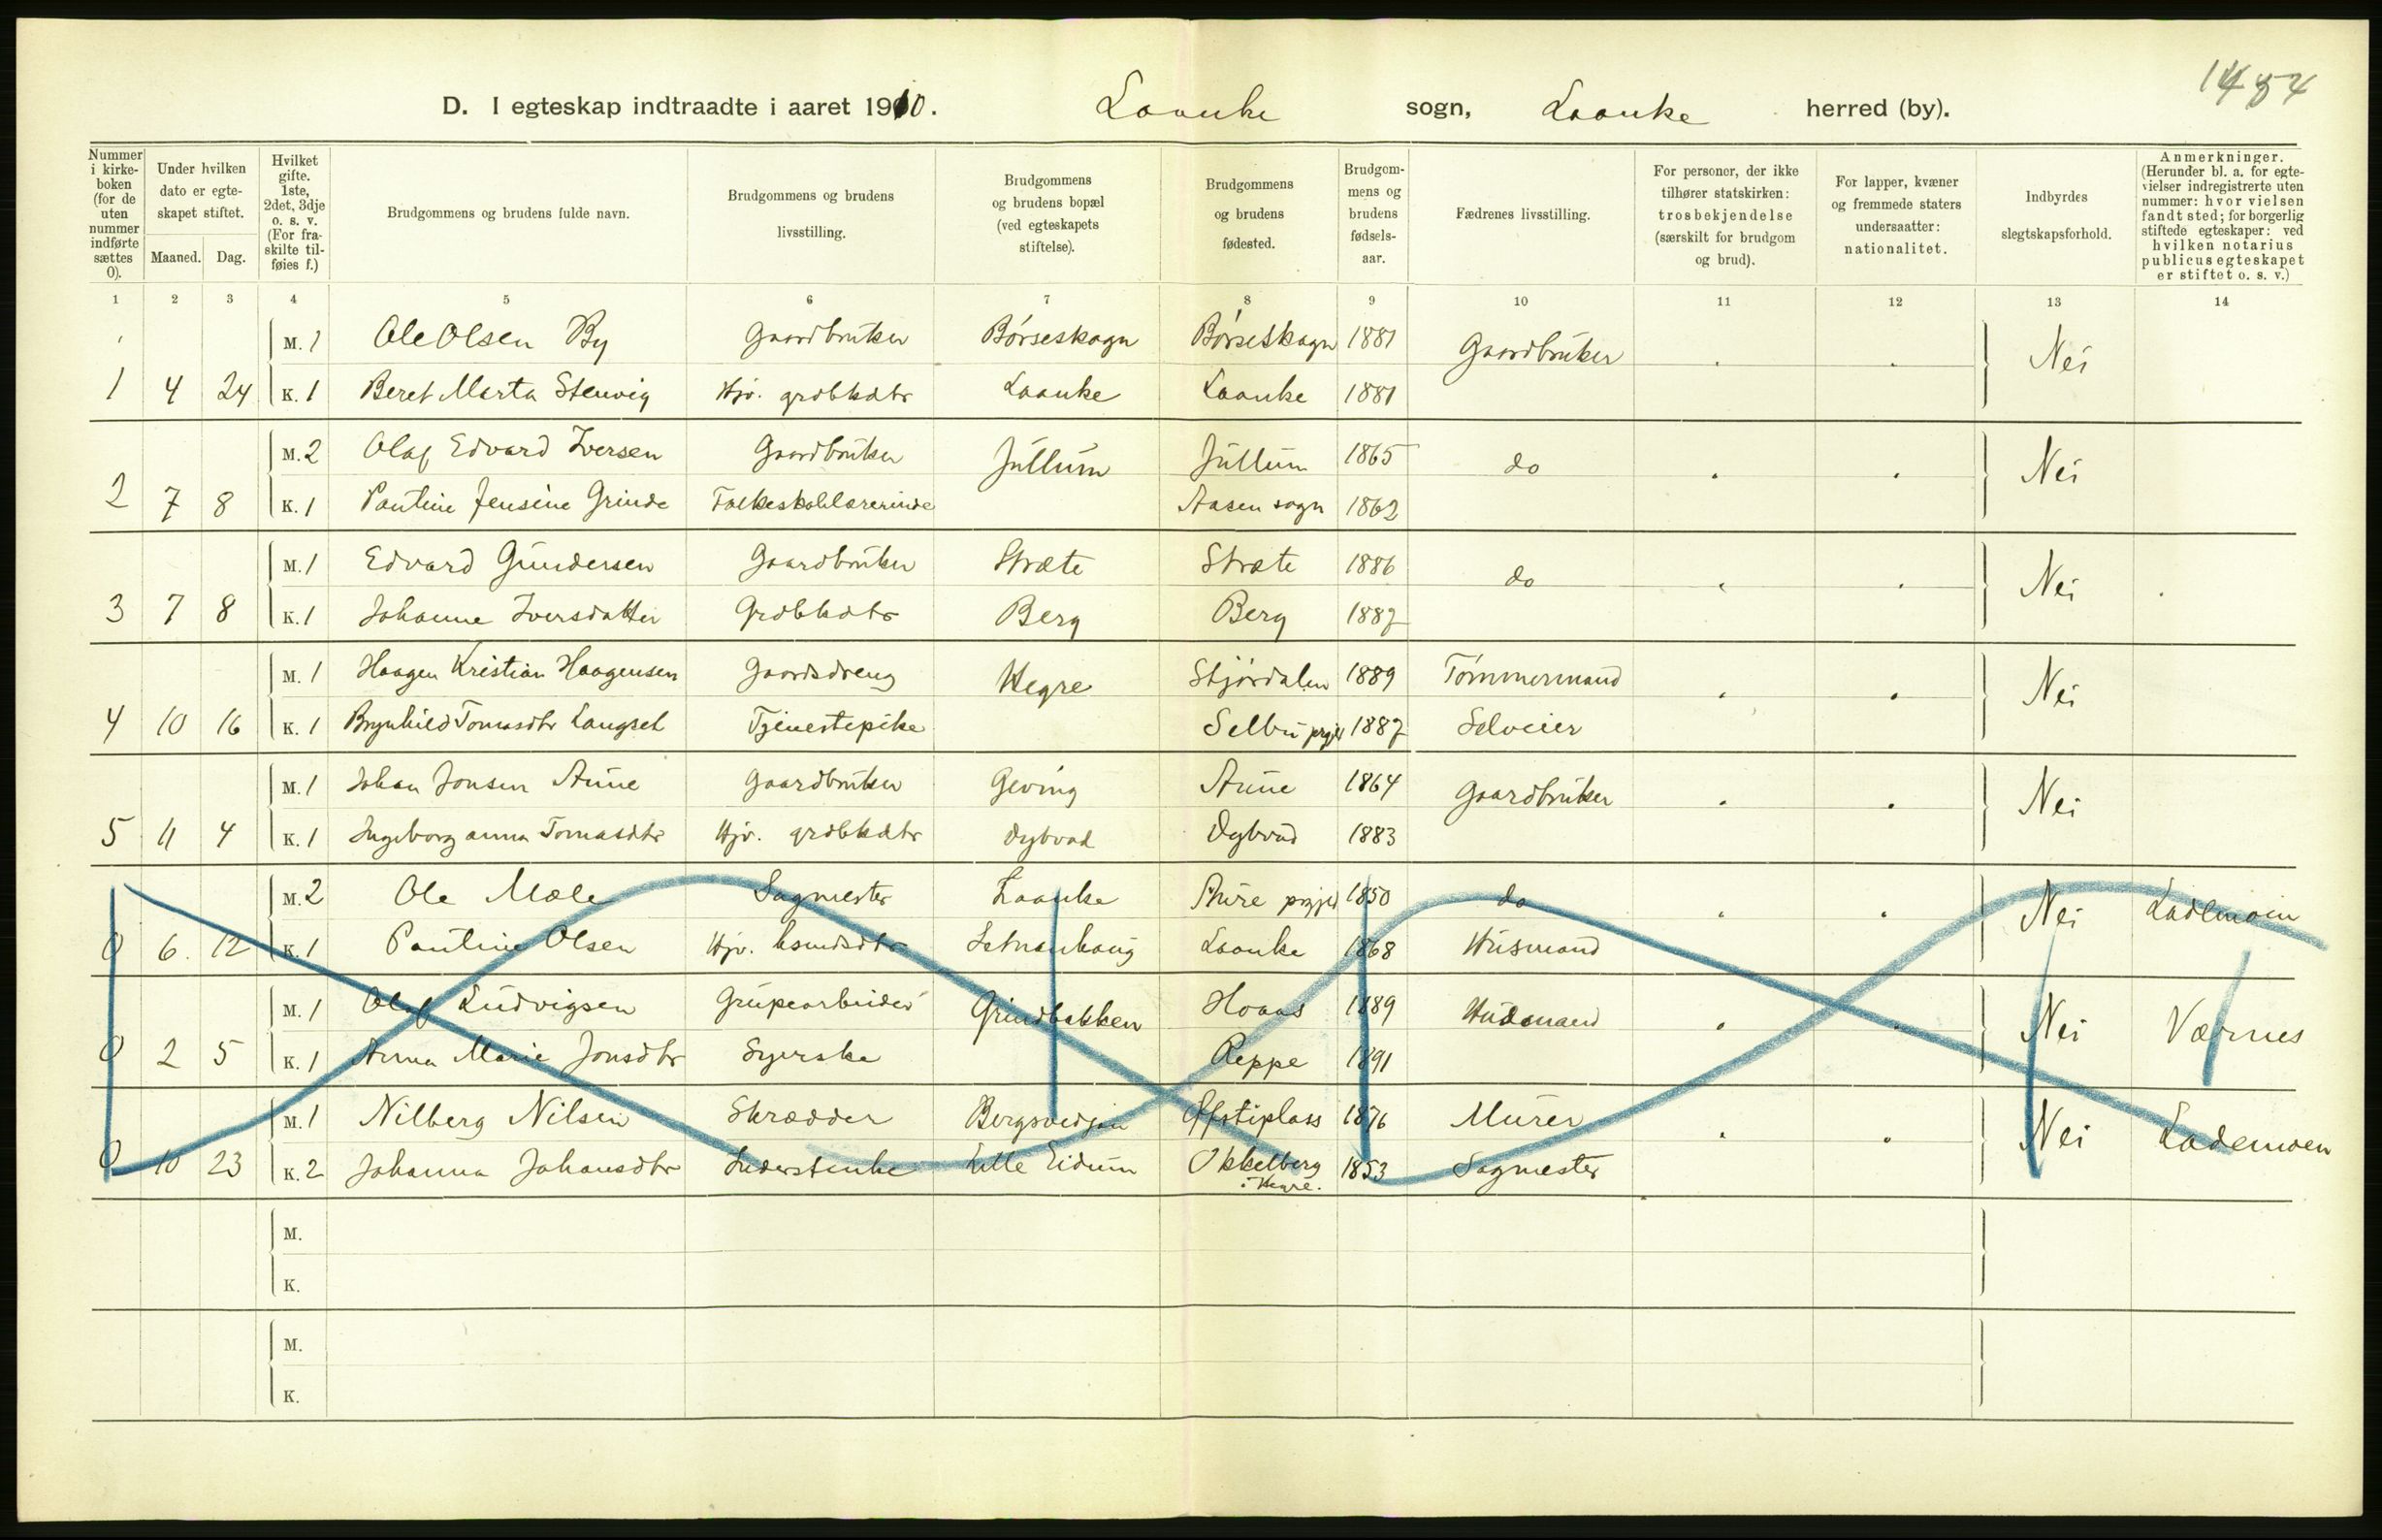 D. I egteskap indtraadte i aaret 1910. Laanke sogn, Laanke herred (by).
Nummer i kirke-boken (for de uten nummer indførte sættes 0).
Under hvilken dato er egte-skapet stiftet.
Maaned. Dag.
Hvilket gifte. 1ste, 2det, 3dje o. s. v. (For fra-skilte til-føies f.)
Brudgommens og brudens fulde navn.
Brudgommens og brudens livsstilling.
Brudgommens og brudens bopæl (ved egteskapets stiftelse).
Brudgommens og brudens fødested.
Brudgom-mens og brudens fødsels-aar.
Fædrenes livsstilling.
For personer, der ikke tilhører statskirken: trosbekjendelse (særskilt for brudgom og brud).
For lapper, kvæner og fremmede staters undersaatter: nationalitet.
Indbyrdes slegtskapsforhold.
Anmerkninger. (Herunder bl. a. for egte-vielser indregistrerte uten nummer: hvor vielsen fandt sted; for borgerlig stiftede egteskaper: ved hvilken notarius publicus egteskapet er stiftet o. s. v.)
1 2 3 4 5 6 7 8 9 10 11 12 13 14
M. 1 Ole Olsen By Gaardbruker Børseskogn Børseskogn 1881 Gaardbruker Nei
1 4 24 K. 1 Beret Marta Stenvig Hjv. grdbkdtr Laanke Laanke 1881
M. 2 Olaf Edvard Iversen Gaardbruker Jullum Jullum 1865 do Nei
2 7 8 K. 1 Pauline Jensine Grinde Folkeskolelærerinde Aasen sogn 1862
M. 1 Edvard Gundersen Gaardbruker Stræte Stræte 1886 do Nei
3 7 8 K. 1 Johanne Iversdatter Grdbkdtr Berg Berg 1887
M. 1 Haagen Kristian Haagensen Gaardsdreng Hegre Stjørdalen 1889 Tømmermand Nei
4 10 16 K. 1 Brynhild Tomasdtr Langset Tjenestepike Selbu prgjd 1887 Selveier
M. 1 Johan Jonsen Aune Gaardbruker Geving Aune 1864 Gaardbruker Nei
5 11 4 K. 1 Ingeborg Anna Tomasdtr Hjv. grdbkdtr Dybvad Dybvad 1883
M. 2 Ole Mæle Sagmester Laanke Aure prgjd 1850 do Nei Lademoen
0 6. 12 K. 1 Pauline Olsen Hjv. husmdsdtr Laanke 1868 Husmand
M. 1 Olaf Ludvigsen Grubearbeider Grindbakken Hoaas 1889 Husmand Nei Værnes
0 2 5 K. 1 Anna Marie Jonsdtr Syerske Reppe 1891
M. 1 Nilberg Nilsen Skrædder 1876 Murer Nei Lademoen
0 10 23 K. 2 Johanna Johansdtr Inderstenke Lille Eidum Okkelberg i Hegre. 1853 Sagmester
M.
K.
M.
K.